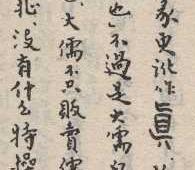 更訛作眞
也」不過是大儒
大儒不只販賣儒
沒有什么特操